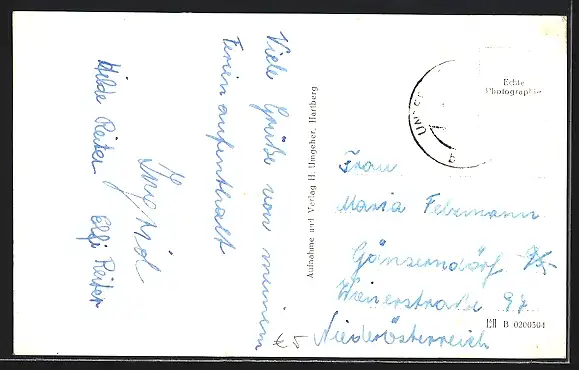 Viele Grüße von meinem
Ferienaufenthalt
Ingrid
Hilde Reiter Elfi Reiter
Aufnahme und Verlag H. Umgeher, Hartberg
Echte
Photographie
Frau
Maria Felzmann
Gänserndorf
Wienerstraße 97
Niederösterreich
B 0200504
€ 5